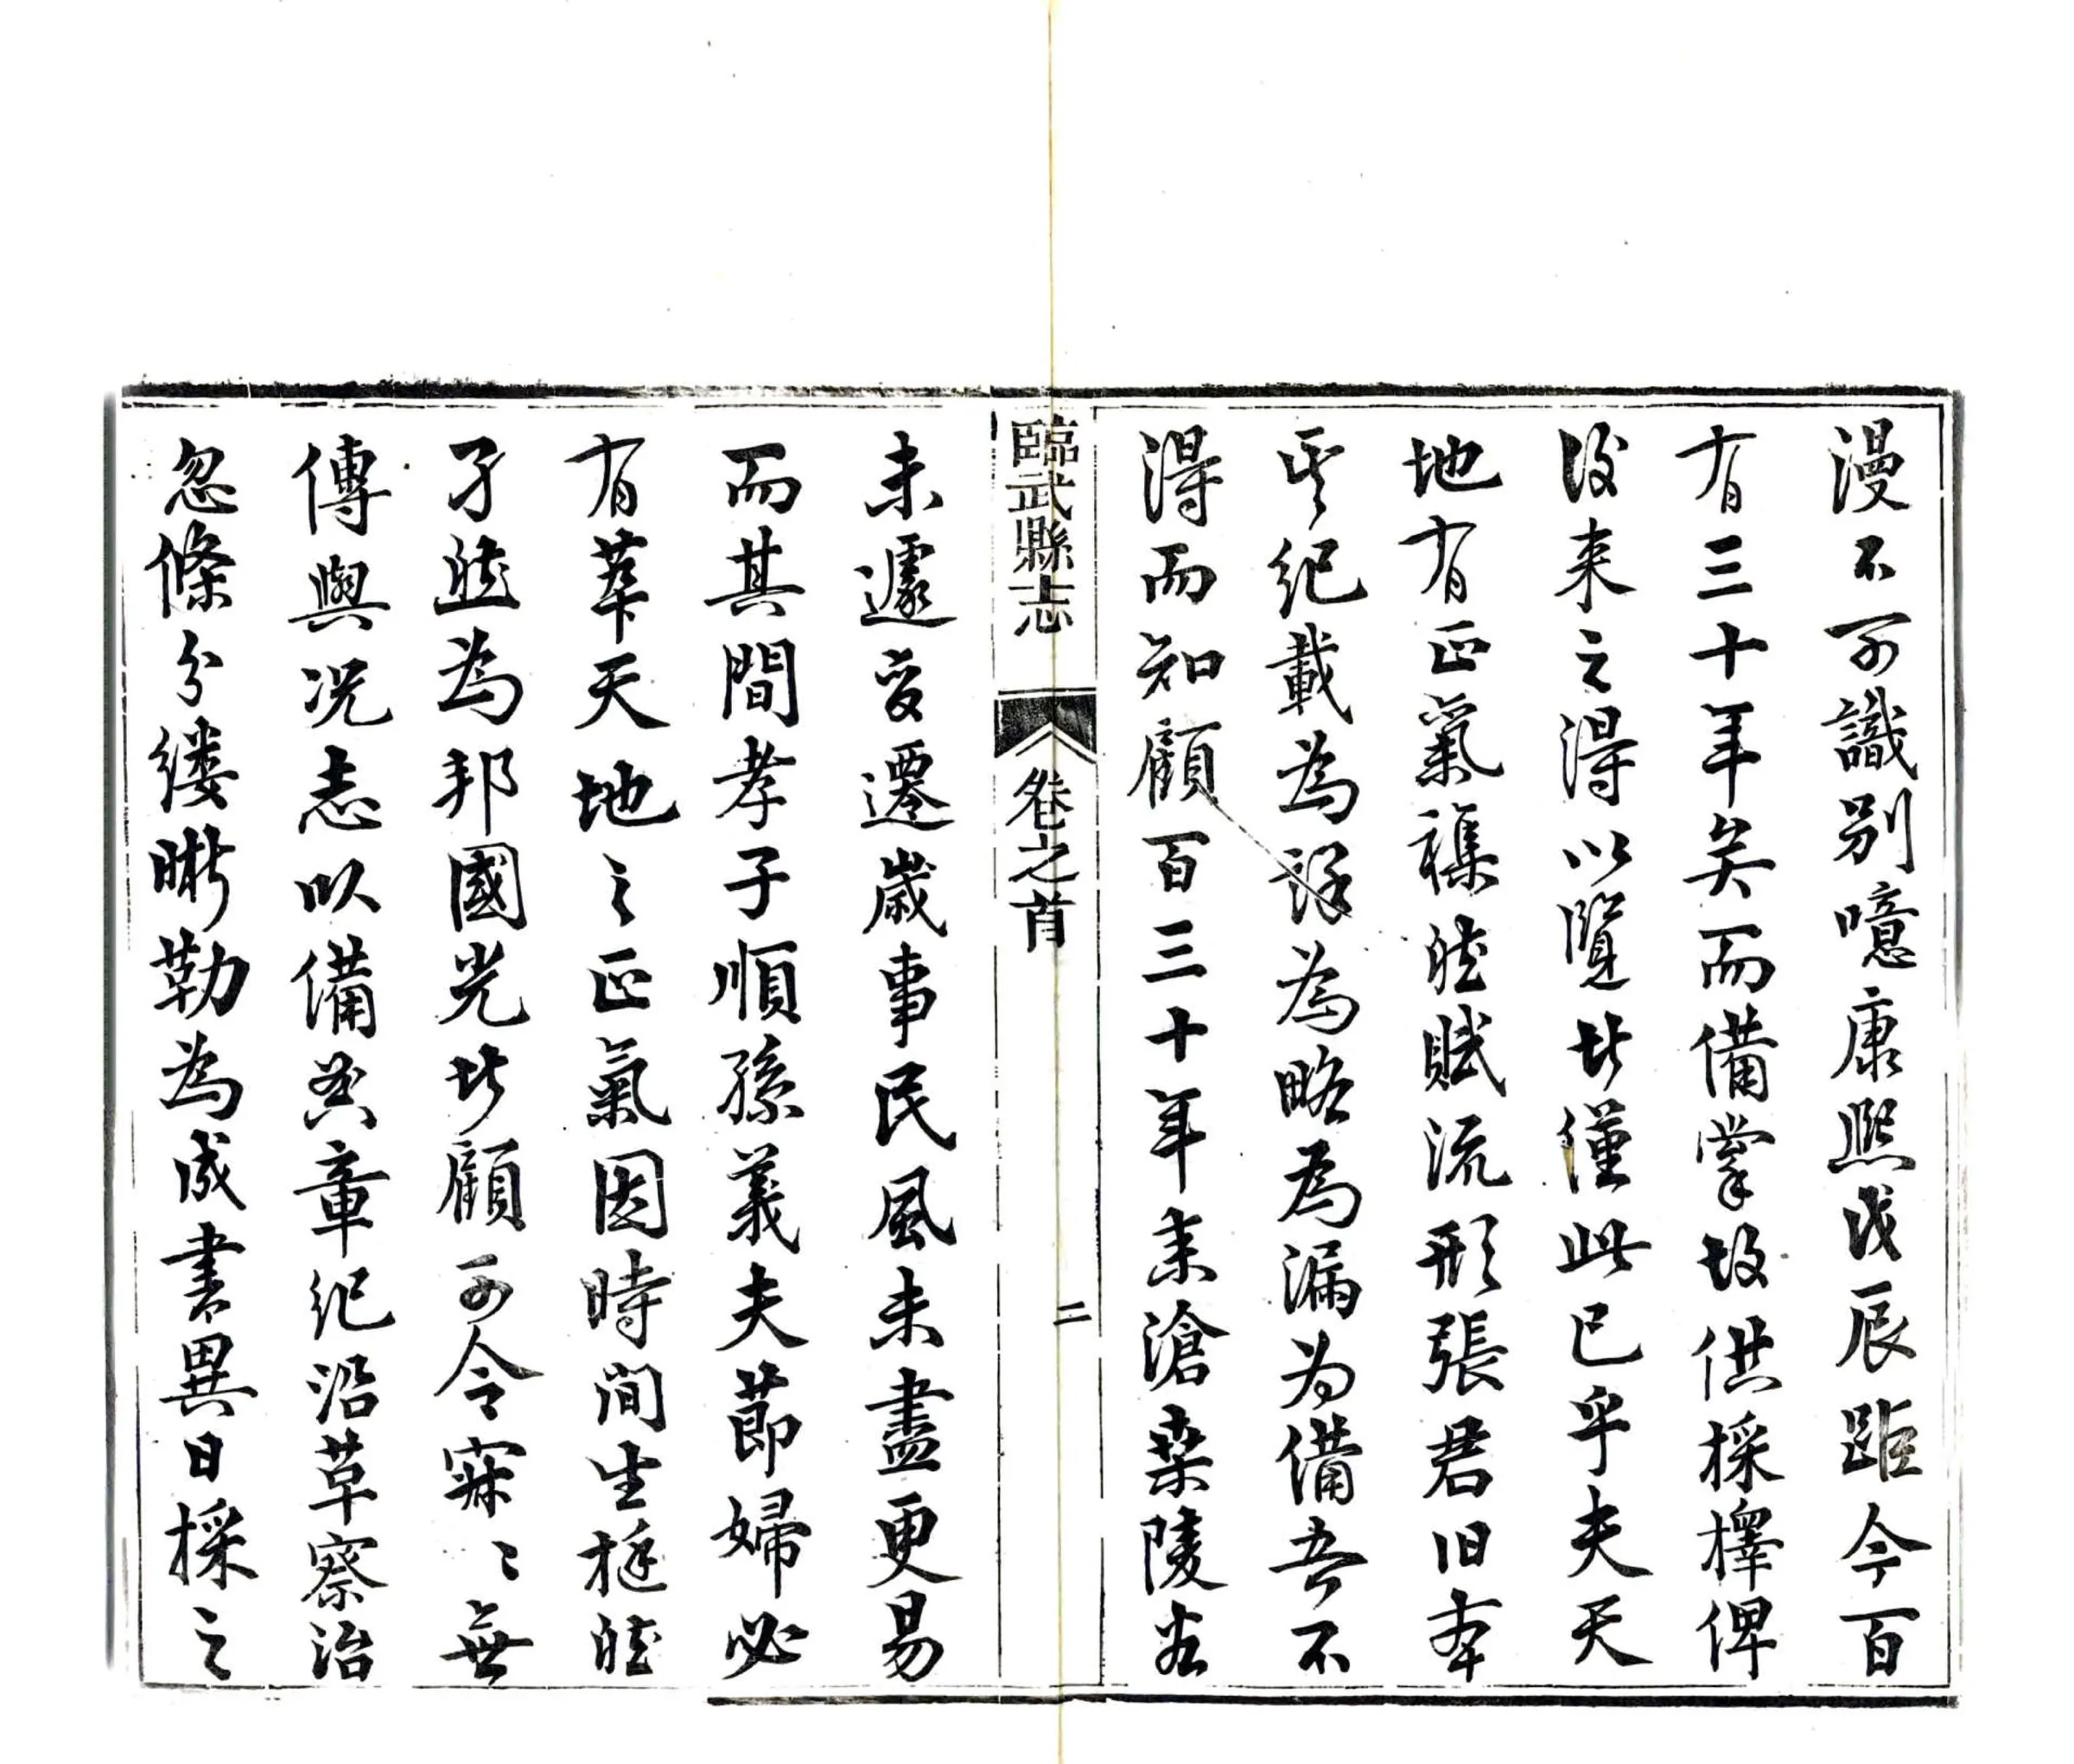 漫不可識別噫康熙戊辰距今百
有三十年矣而備掌故供採擇俾
後来之得以覽者僅此已乎夫天
地有正氣襍然賦流形張君旧本
其紀載為詳為略為漏為備吾不
得而知顧百三十年来滄桑陵谷
臨武縣志 卷之首 二
未遽變遷歲事民風未盡更易
而其間孝子順孫義夫節婦必
有萃天地之正氣因時間生挺然
孑然為邦國光者顧可令寂〻無
傳與况志以備典章紀沿革察治
忽條分縷晰勒為成書異日採之